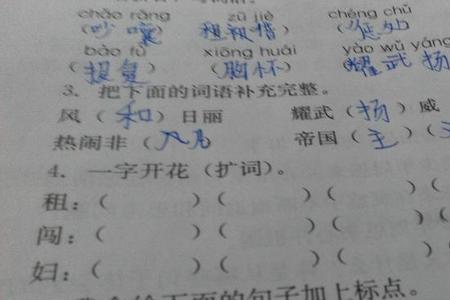 chǎo rǎng zū jiè chéng chǔ
(吵 嚷) (租借) (处)
bào fù xiōng huái yào wǔ yáng
(报复) (胸怀) (耀武 扬
3. 把下面的词语补充完整。
风(和)日丽 耀武(扬)威
热闹非(凡) 帝国(主)(
4. 一字开花(扩词)。
租:( )( )( )(
闯:( )( )( )(
妇:( )( )( )(
下面的句子加上标点。